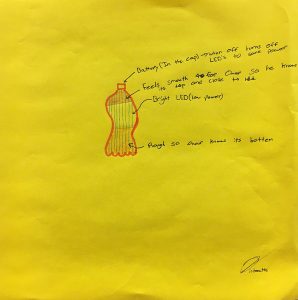 Battery (In the cap) - button off turns off
LED's to save power
Feels smooth for Chaar so he knows
to top and close to
Bright LED (low power)
Rough so chaar knows its bottom